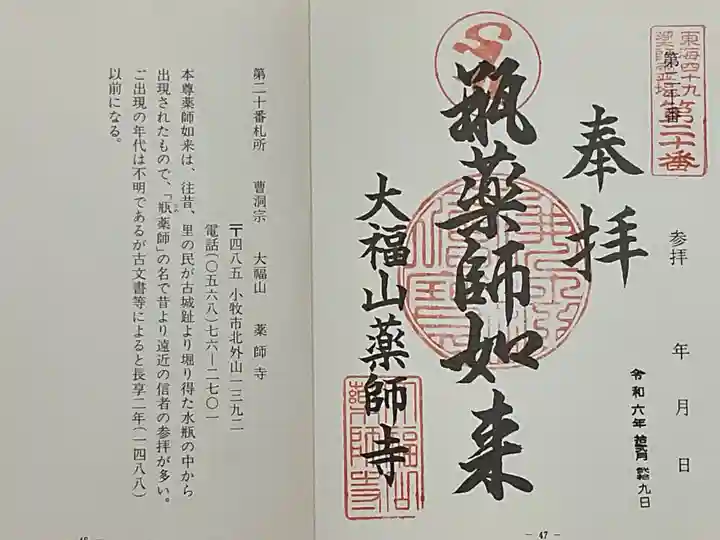 東海四十九
第二十番
第二十番
参拝
年 月 日
令和六年
九日
奉拝
瓶薬師如来
大福山薬師寺
― 47 ―
第二十番札所 曹洞宗 大福山 薬師寺
〒四八五 小牧市北外山一三九二
電話(〇五六八)七六―二七〇一
本尊薬師如来は、往昔、里の民が古城趾より堀り得た水瓶の中から
出現されたもので、「瓶薬師」の名で昔より遠近の信者の参拝が多い。
ご出現の年代は不明であるが古文書等によると長享二年(一四八八)
以前になる。